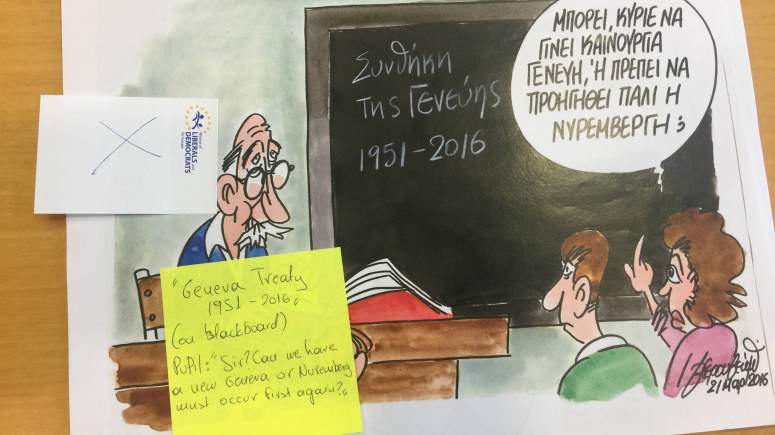 ΜΠΟΡΕΙ, ΚΥΡΙΕ ΝΑ
ΓΙΝΕΙ ΚΑΙΝΟΥΡΓΙΑ
ΓΕΝΕΥΗ, Ή ΠΡΕΠΕΙ ΝΑ
ΠΡΟΗΓΗΘΕΙ ΠΑΛΙ Η
ΝΥΡΕΜΒΕΡΓΗ;
Συνθήκη
της Γενεύης
1951-2016
LIBERALS and
DEMOCRATS
"Geneva Treaty
1951-2016"
(on blackboard)
Pupil: "Sir? Can we have
a new Geneva or Nuremberg
must occur first again?"
21 Μαρ 2016